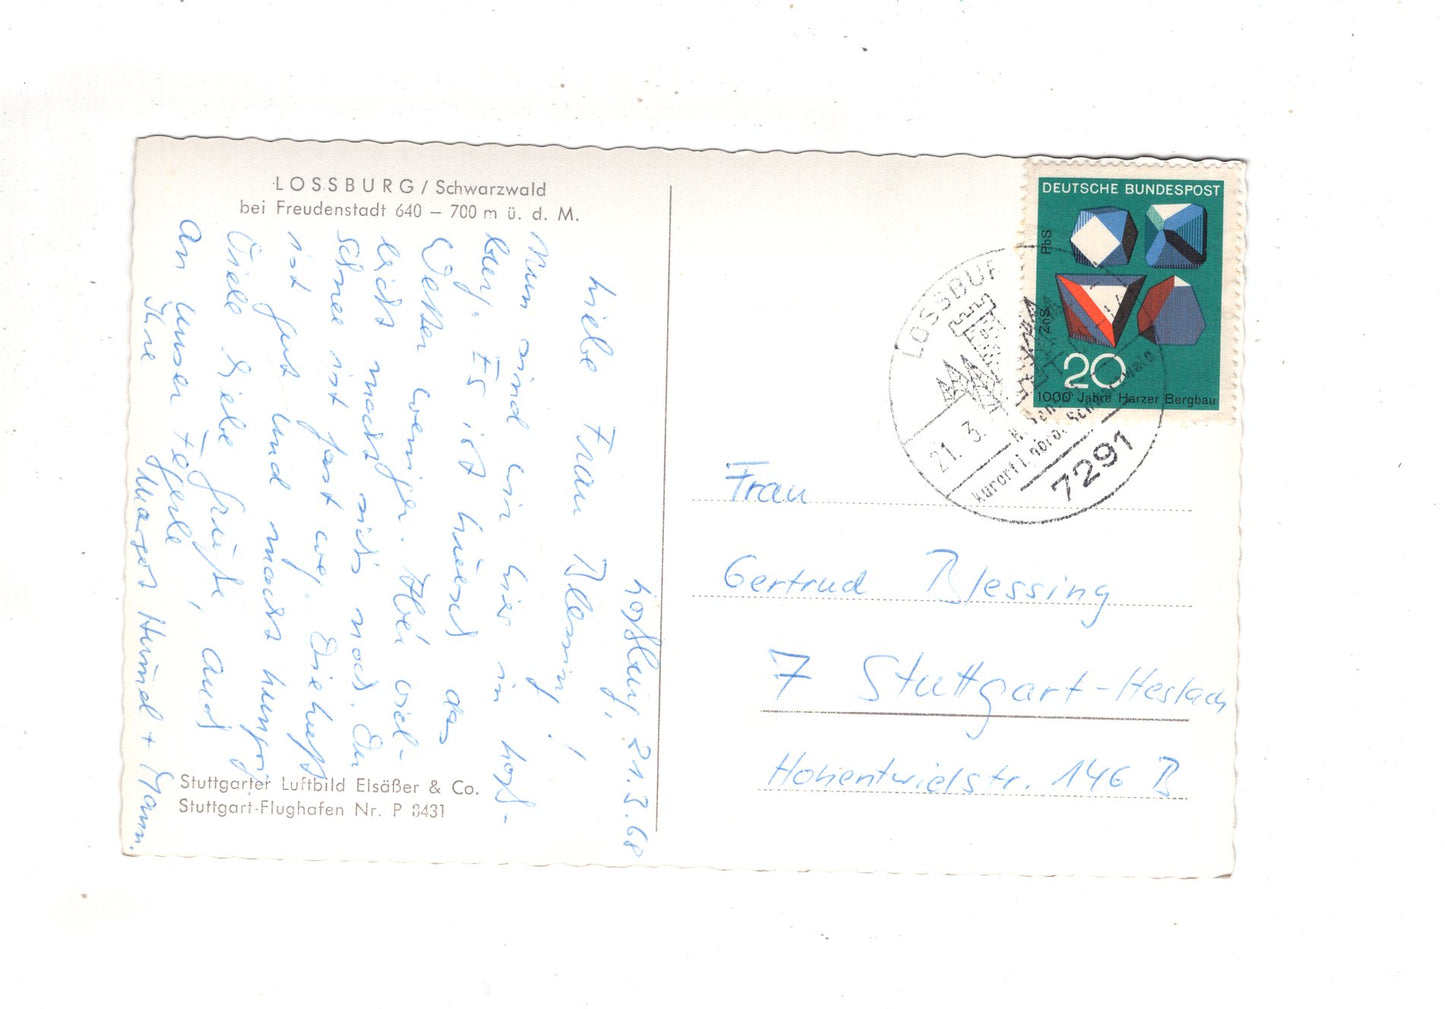 LOSSBURG / Schwarzwald
bei Freudenstadt 640 – 700 m ü. d. M.
Loßburg, 21.3.68
Liebe Frau Blessing!
Nun sind wir hier in Loß-
burg. Es ist hier das
Wetter weniger. Aber viel-
leicht macht sichs noch. Der
Schnee ist fast weg. Die Luft
ist gut und macht hungrig
Viele liebe Grüße, auch
an unser
Ihre
Margot Himmel + Mann.
Stuttgarter Luftbild Elsäßer & Co.
Stuttgart-Flughafen Nr. P 8431
DEUTSCHE BUNDESPOST
PbS
ZnS
20
1000 Jahre Harzer Bergbau
LOSSBURG
21. 3.
kurort i. nörd. Schwarzwald
7291
Frau
Gertrud Blessing
7 Stuttgart-Heslach
Hohentwielstr. 146 B